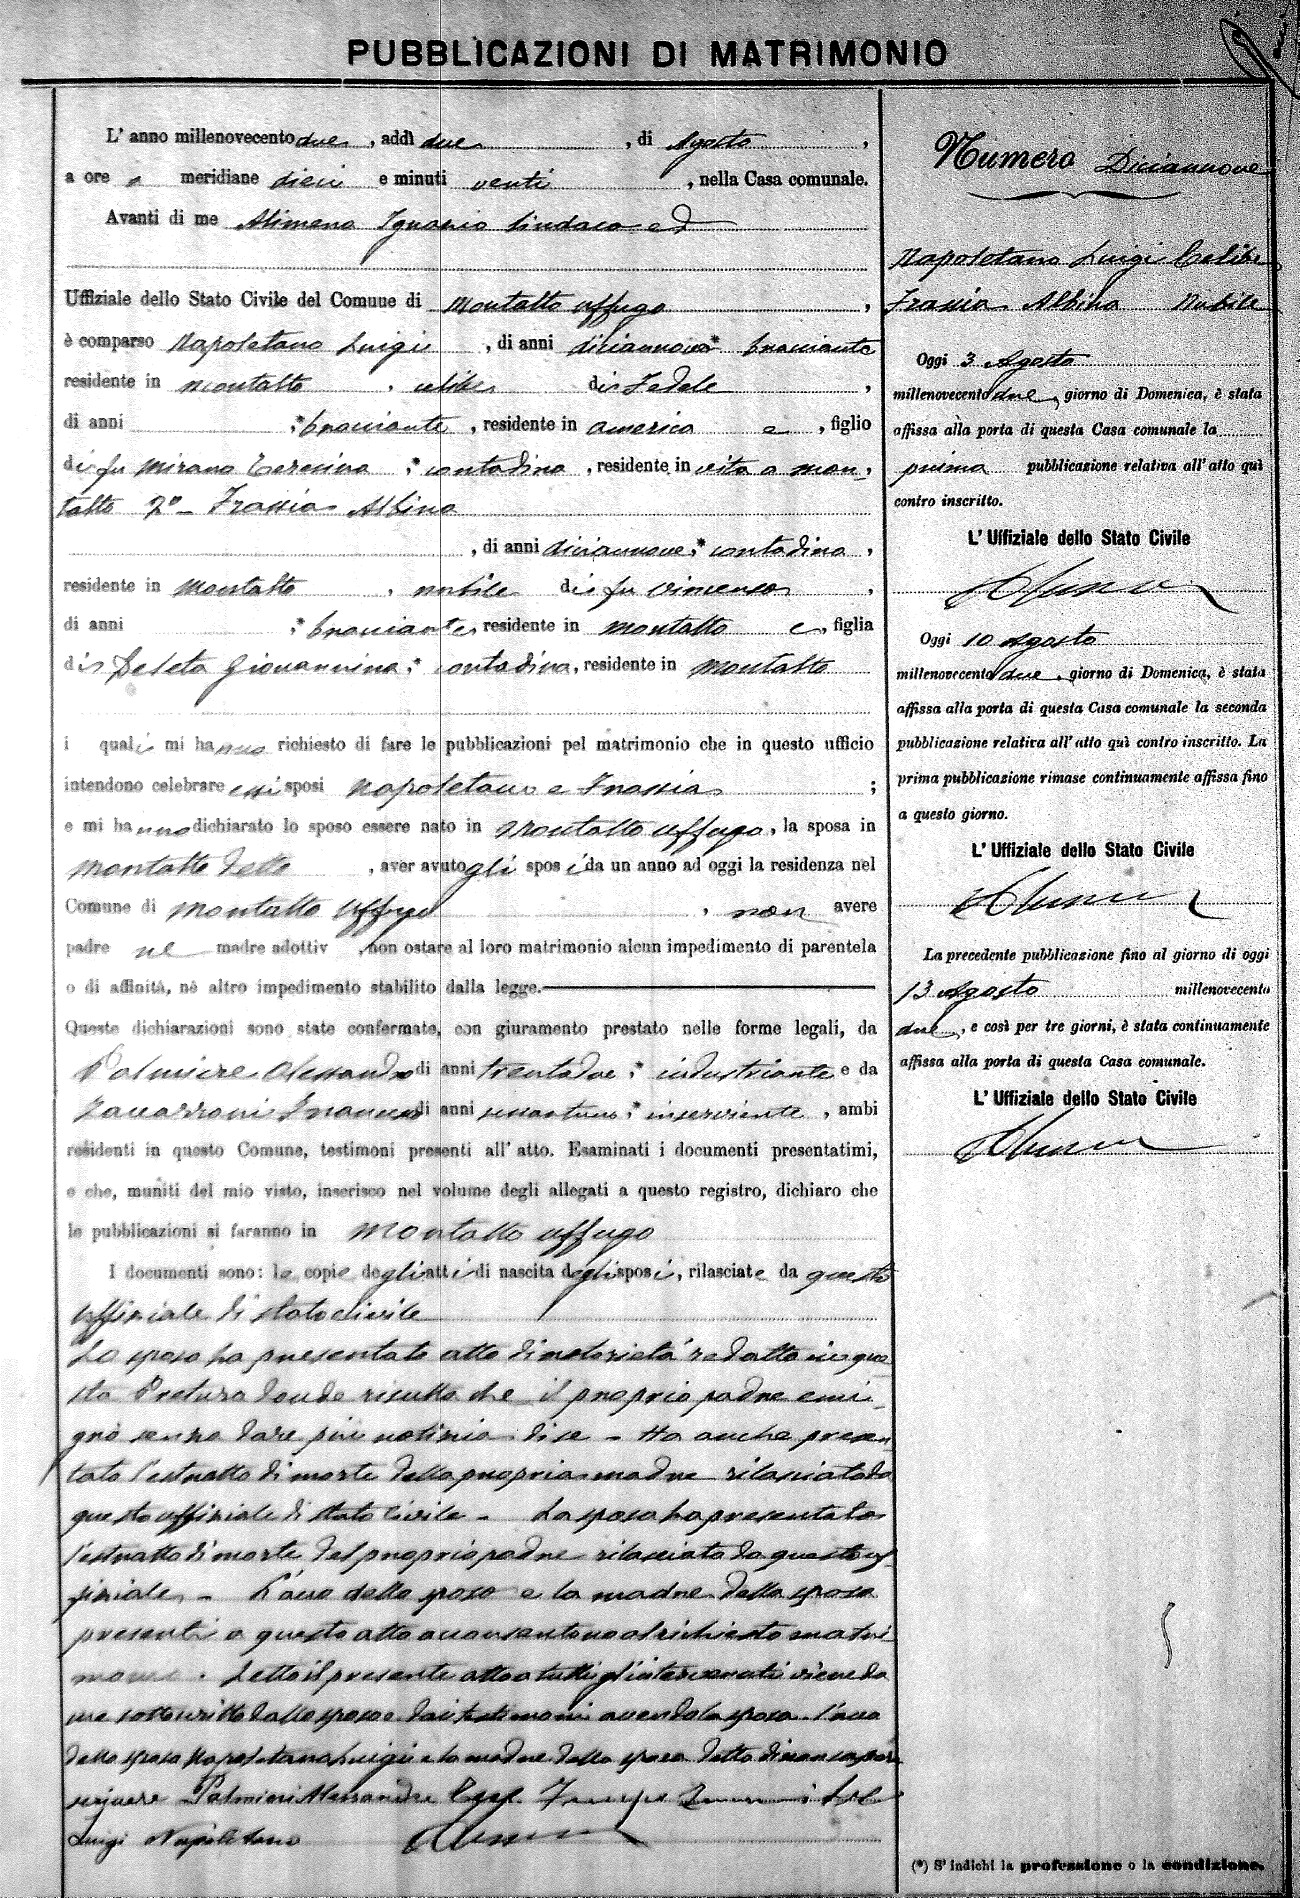 PUBBLICAZIONI DI MATRIMONIO
L' anno millenovecento due, addì due, di Agosto,
a ore meridiane dieci e minuti venti, nella Casa comunale.
Avanti di me Alimena Ignazio Sindaco ed
Uffiziale dello Stato Civile del Comune di Montalto Uffugo,
è comparso Napoletano Luigi, di anni diciannove * bracciante
residente in Montalto, celibe di Fedele,
di anni ;* bracciante, residente in America e, figlio
di fu Mirano Teresina ;* contadina, residente in vita a Mon-
talto 2° - Frassia Albina
, di anni diciannove ;* contadina,
residente in Montalto, nubile di fu Vincenzo,
di anni ;* bracciante, residente in Montalto e, figlia
di Seleta Giovannina ;* contadina, residente in Montalto
i quali mi hanno richiesto di fare le pubblicazioni pel matrimonio che in questo ufficio
intendono celebrare essi sposi Napoletano e Frassia ;
e mi hanno dichiarato lo sposo essere nato in Montalto Uffugo, la sposa in
Montalto detto, aver avuto gli sposi da un anno ad oggi la residenza nel
Comune di Montalto Uffugo, non avere
padre nè madre adottiv , non ostare al loro matrimonio alcun impedimento di parentela
o di affinità, nè altro impedimento stabilito dalla legge.
Queste dichiarazioni sono state confermate, con giuramento prestato nelle forme legali, da
Palmiere Alessandro di anni trentadue ;* industriante e da
Zaccarroni Francesco di anni sessantuno ;* inserviente, ambi
residenti in questo Comune, testimoni presenti all' atto. Esaminati i documenti presentatimi,
e che, muniti del mio visto, inserisco nel volume degli allegati a questo registro, dichiaro che
le pubblicazioni si faranno in Montalto Uffugo
I documenti sono: le copie degli atti di nascita degli sposi, rilasciate da questo
uffiziale di stato civile
Lo sposo ha presentato atto di notorietà redatto in que
sta Pretura donde risulta che il proprio padre emi-
grò senza dare più notizia di se - Ha anche presen
tato l'estratto di morte della propria madre rilasciato da
questo uffiziale di stato civile - La sposa ha presentato
l'estratto di morte del proprio padre rilasciato da questo uf
fiziale - L'avo dello sposo e la madre della sposa
presenti a questo atto acconsentono al richiesto matri
monio. Letto il presente atto a tutti gl'intervenuti viene da
me sottoscritto dallo sposo e dai testimoni avendo la sposa l'avo
dello sposo Napoletano Luigi e la madre della sposa detto di non sapere
scrivere Palmieri Alessandro
Luigi Napoletano
Numero Diciannove
Napoletano Luigi Celibe
Frassia Albina Nubile
Oggi 3 Agosto
millenovecento due, giorno di Domenica, è stata
affissa alla porta di questa Casa comunale la
prima pubblicazione relativa all' atto quì
contro inscritto.
L' Uffiziale dello Stato Civile
Oggi 10 Agosto
millenovecento due, giorno di Domenica, è stata
affissa alla porta di questa Casa comunale la seconda
pubblicazione relativa all' atto quì contro inscritto. La
prima pubblicazione rimase continuamente affissa fino
a questo giorno.
L' Uffiziale dello Stato Civile
La precedente pubblicazione fino al giorno di oggi
13 Agosto millenovecento
due, e così per tre giorni, è stata continuamente
affissa alla porta di questa Casa comunale.
L' Uffiziale dello Stato Civile
(*) S' indichi la professione o la condizione.